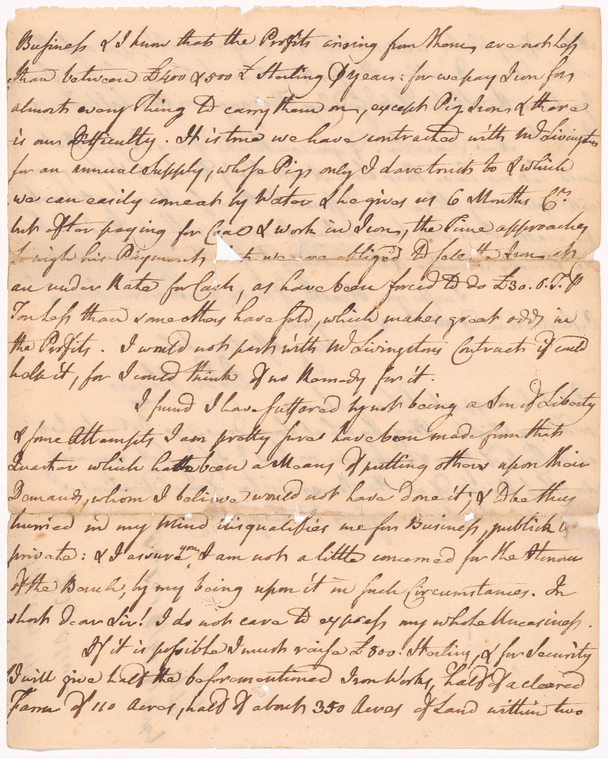 Business & I know that the Profits arising from them, are not less
than between £400 & 500 £ Sterling ⅌ year: for we pay Iron for
almost every thing to carry them on, except Pig Iron, & there
is our difficulty. It is true we have contracted with Mr Livingston
for an annual Supply, whose Pigs only I dare trust to & which
we can easily come at by Water & he gives us 6 Months Crt
but after paying for Coal & work in Iron, the Time approaches
to make his Payments, that we are obliged to sell the Iron at
an under Rate for Cash, as have been forced to do £30.0. ⅌
Ton less than some others have sold, which makes great odds in
the Profits. I would not part with Mr Livingstons Contract if I could
help it, for I could think of no Remedy for it.
I find I have suffered by not being a Son of Liberty
& some Attempts I am pretty sure have been made from that
Quarter which hath been a Means of putting others upon their
Demands, whom I believe would not have done it; & to be thus
hurried in my Mind disqualifies me for Business, publick or
private: & I assure you I am not a little concerned for the Honour
of the Bench, by my being upon it in such Circumstances. In
short Dear Sir! I do not care to express my whole Uneasiness.
If it is possible I must raise £800. Sterling, & for Security
I will give half the beforementioned Iron Works, half of a cleared
Farm of 110 Acres, half of about 350 Acres of Land within two